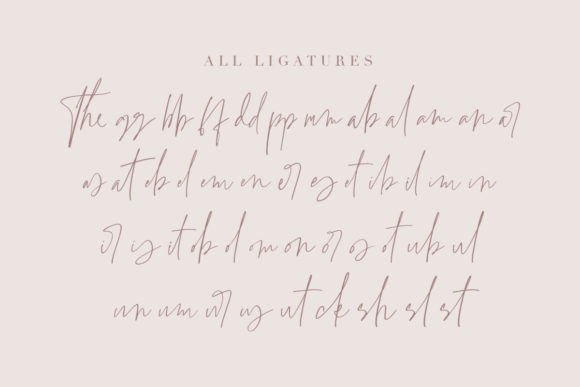 ALL LIGATURES
The gg bb ff dd pp mm ab al am an ar
as at eb el em en er es et ib il im in
ir is it ob ol om on or os ot ub ul
un um ur us ut ck sh sl st